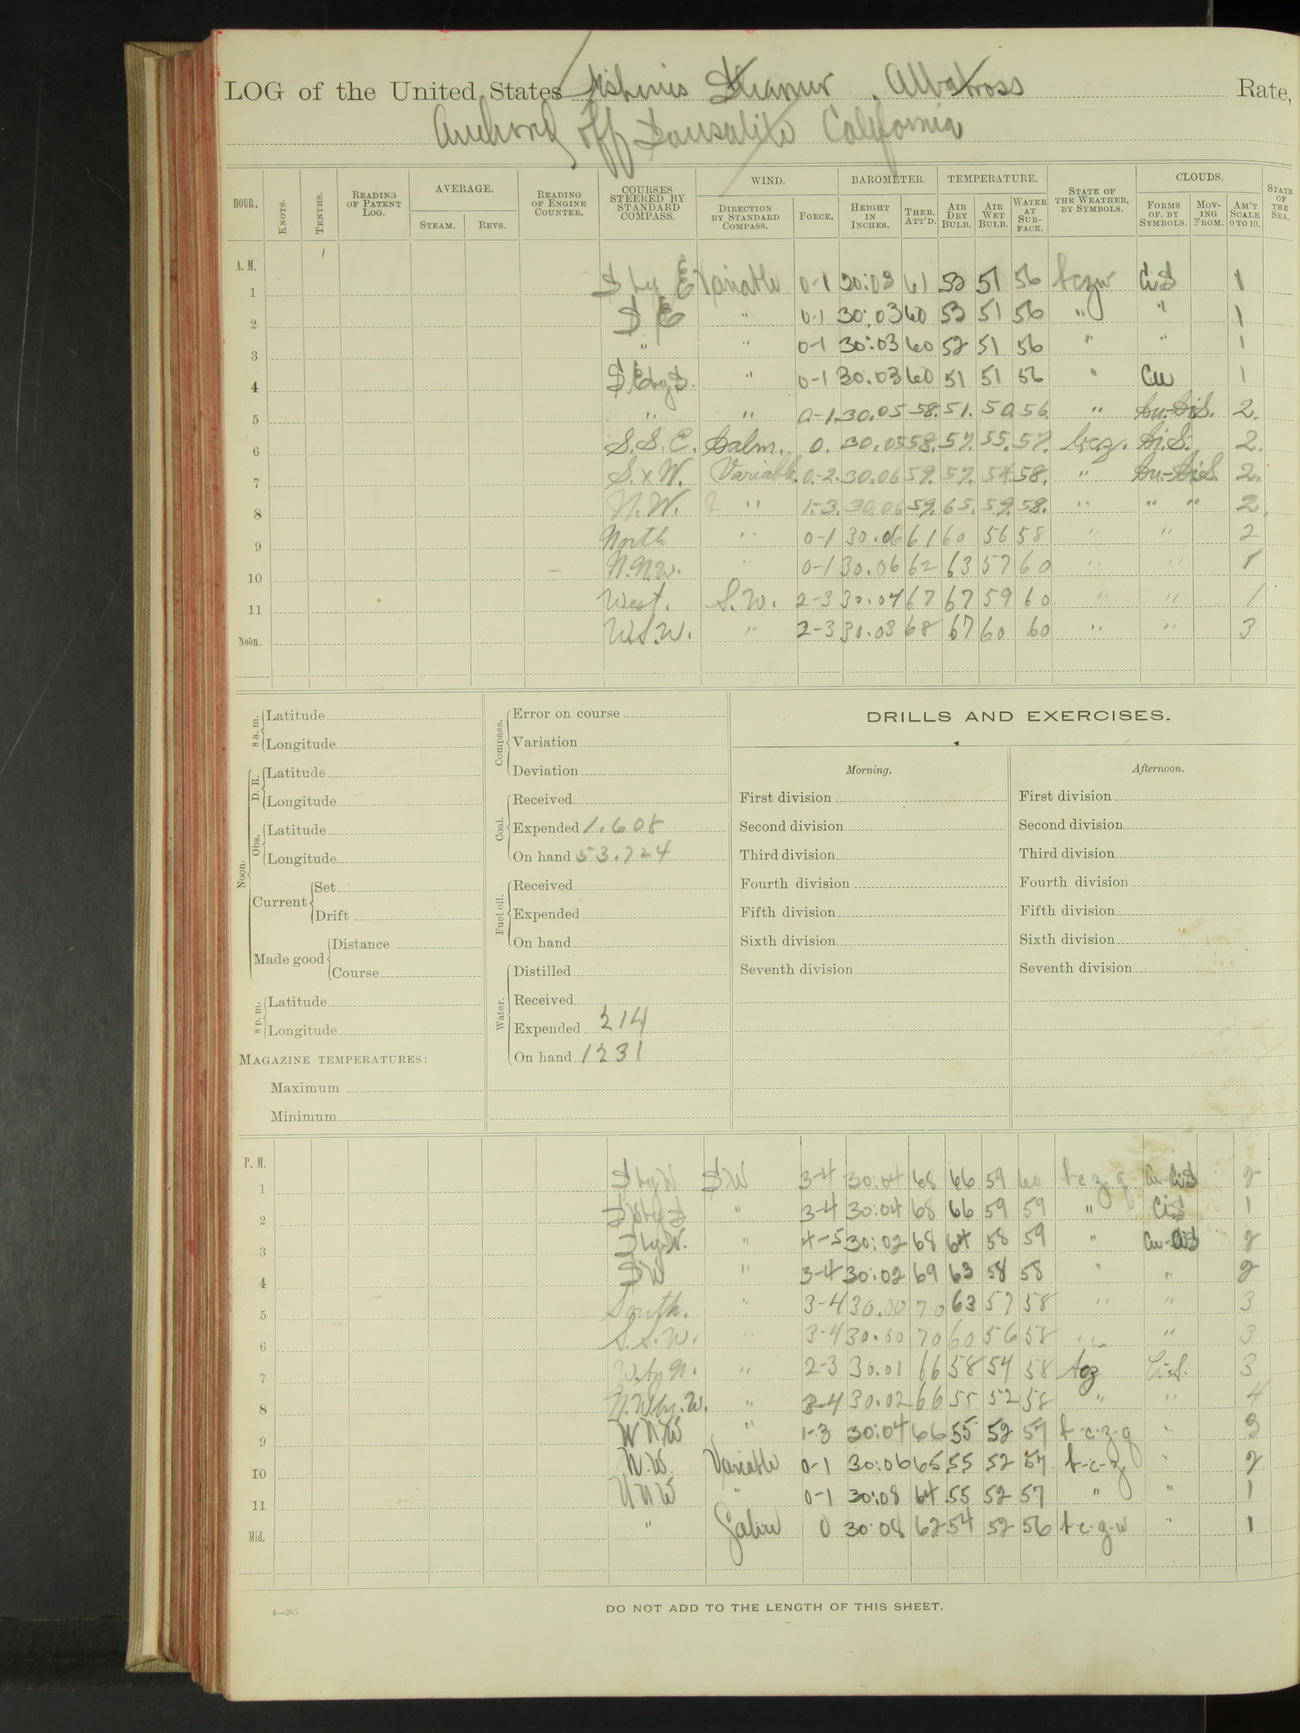 LOG of the United States Fisheries Steamer Albatross Rate,
Anchored off Sausalito California
HOUR. KNOTS. TENTHS. READING OF PATENT LOG. AVERAGE. STEAM. REVS. READING OF ENGINE COUNTER. COURSES STEERED BY STANDARD COMPASS. WIND. DIRECTION BY STANDARD COMPASS. FORCE. BAROMETER. HEIGHT IN INCHES. THER. ATT'D. TEMPERATURE. AIR DRY BULB. AIR WET BULB. WATER AT SURFACE. STATE OF THE WEATHER, BY SYMBOLS. CLOUDS. FORMS OF, BY SYMBOLS. MOVING FROM. AM'T SCALE 0 TO 10. STATE OF THE SEA.
A. M.
1 S by E Variable 0-1 30:03 61 52 51 56 bczw CiS 1
2 S E " 0-1 30:03 60 52 51 56 " " 1
3 " " 0-1 30:03 60 52 51 56 " " 1
4 SE by S. " 0-1 30.03 60 51 51 56 " Cu 1
5 " " 0-1. 30.05 58. 51. 50. 56. " Cu.-CiS. 2.
6 S.S.E. Calm. 0. 30.05 58. 57. 55. 57. bcz. Ci.S. 2.
7 S.xW. Variable. 0.-2. 30.06 59. 57. 54. 58. " Cu.-CiS. 2.
8 N.W. " 1-3. 30.06 59. 65. 59. 58. " " " 2.
9 North " 0-1 30.06 61 60 56 58 " " 2
10 N.N.W. " 0-1 30.06 62 63 57 60 " " 1
11 West. S.W. 2-3 30.04 67 67 59 60 " " 1
Noon. W.S.W. " 2-3 30.03 68 67 60 60 " " 3
8 a. m. Latitude
Longitude
Noon. D. R. Latitude
Longitude
Obs. Latitude
Longitude
Current Set
Drift
Made good Distance
Course
8 p. m. Latitude
Longitude
MAGAZINE TEMPERATURES:
Maximum
Minimum
Compass. Error on course
Variation
Deviation
Coal. Received
Expended 1.608
On hand 53.724
Fuel oil. Received
Expended
On hand
Water. Distilled
Received
Expended 214
On hand 1231
DRILLS AND EXERCISES.
Morning. Afternoon.
First division First division
Second division Second division
Third division Third division
Fourth division Fourth division
Fifth division Fifth division
Sixth division Sixth division
Seventh division Seventh division
P. M.
1 S by W SW 3-4 30:04 68 66 59 60 b c z q Cu-CiS 2
2 " 3-4 30:04 68 66 59 59 " CiS 1
3 S by W. " 4-5 30:02 68 64 58 59 " Cu-CiS 2
4 SW " 3-4 30:02 69 63 58 58 " " 2
5 South. " 3-4 30.00 70 63 57 58 " " 3
6 S.S.W. " 3-4 30.00 70 60 56 58 " " 3
7 W. by N. " 2-3 30.01 66 58 54 58 bcz Ci.S. 3
8 N.W. by. W. " 3-4 30.02 66 55 52 58 " " 4
9 WNW " 1-3 30:04 66 55 52 57 b-c-z-q " 3
10 N.W. Variable 0-1 30:06 65 55 52 57 b-c-z " 2
11 NNW " 0-1 30:08 64 55 52 57 " " 1
Mid. " Calm 0 30:08 62 54 52 56 b-c-z-w " 1
4—265
DO NOT ADD TO THE LENGTH OF THIS SHEET.